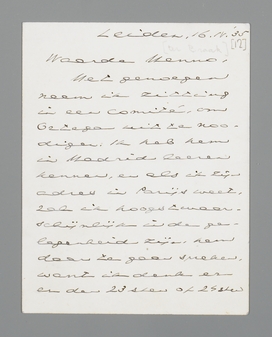 Leiden, 16.IV.'35
Waarde Menno,
Met genoegen
neem ik zitting
in een comité, om
Ortega uit te noo-
digen. Ik heb hem
in Madrid leeren
kennen, en als ik zijn
adres in Parijs weet,
zal ik hoogstwaar-
schijnlijk in de ge-
legenheid zijn, hem
daar te gaan spreken,
want ik denk er
en den 23sten of 24sten